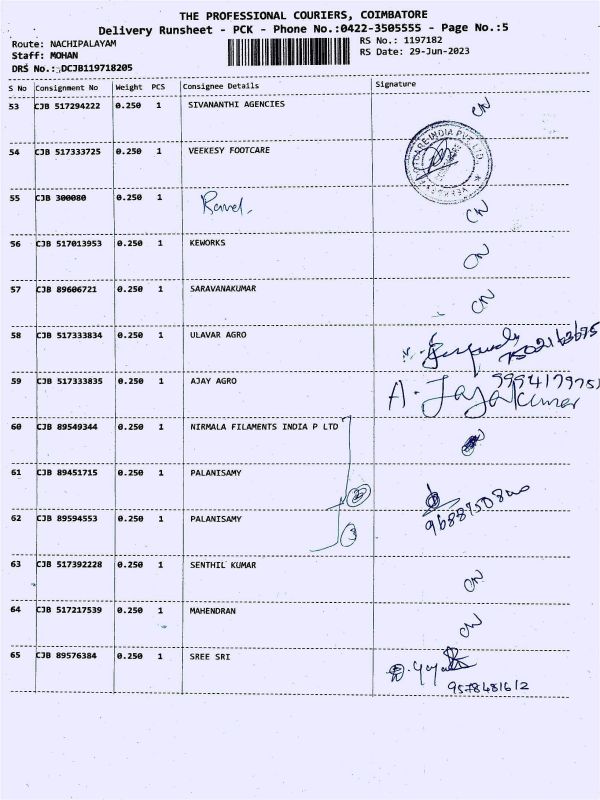 THE PROFESSIONAL COURIERS, COIMBATORE
Delivery Runsheet - PCK - Phone No.:0422-3505555 - Page No.:5
Route: NACHIPALAYAM
RS No.: 1197182
Staff: MOHAN
RS Date: 29-Jun-2023
DRS No.: DCJB119718205
S No Consignment No Weight PCS Consignee Details Signature
53 CJB 517294222 0.250 1 SIVANANTHI AGENCIES CN
54 CJB 517333725 0.250 1 VEEKESY FOOTCARE
55 CJB 300080 0.250 1 CN
56 CJB 517013953 0.250 1 KEWORKS CN
57 CJB 89606721 0.250 1 SARAVANAKUMAR CN
58 CJB 517333834 0.250 1 ULAVAR AGRO
59 CJB 517333835 0.250 1 AJAY AGRO A. Jayakumar
60 CJB 89549344 0.250 1 NIRMALA FILAMENTS INDIA P LTD
61 CJB 89451715 0.250 1 PALANISAMY
62 CJB 89594553 0.250 1 PALANISAMY
63 CJB 517392228 0.250 1 SENTHIL KUMAR CN
64 CJB 517217539 0.250 1 MAHENDRAN CN
65 CJB 89576384 0.250 1 SREE SRI
9578481612